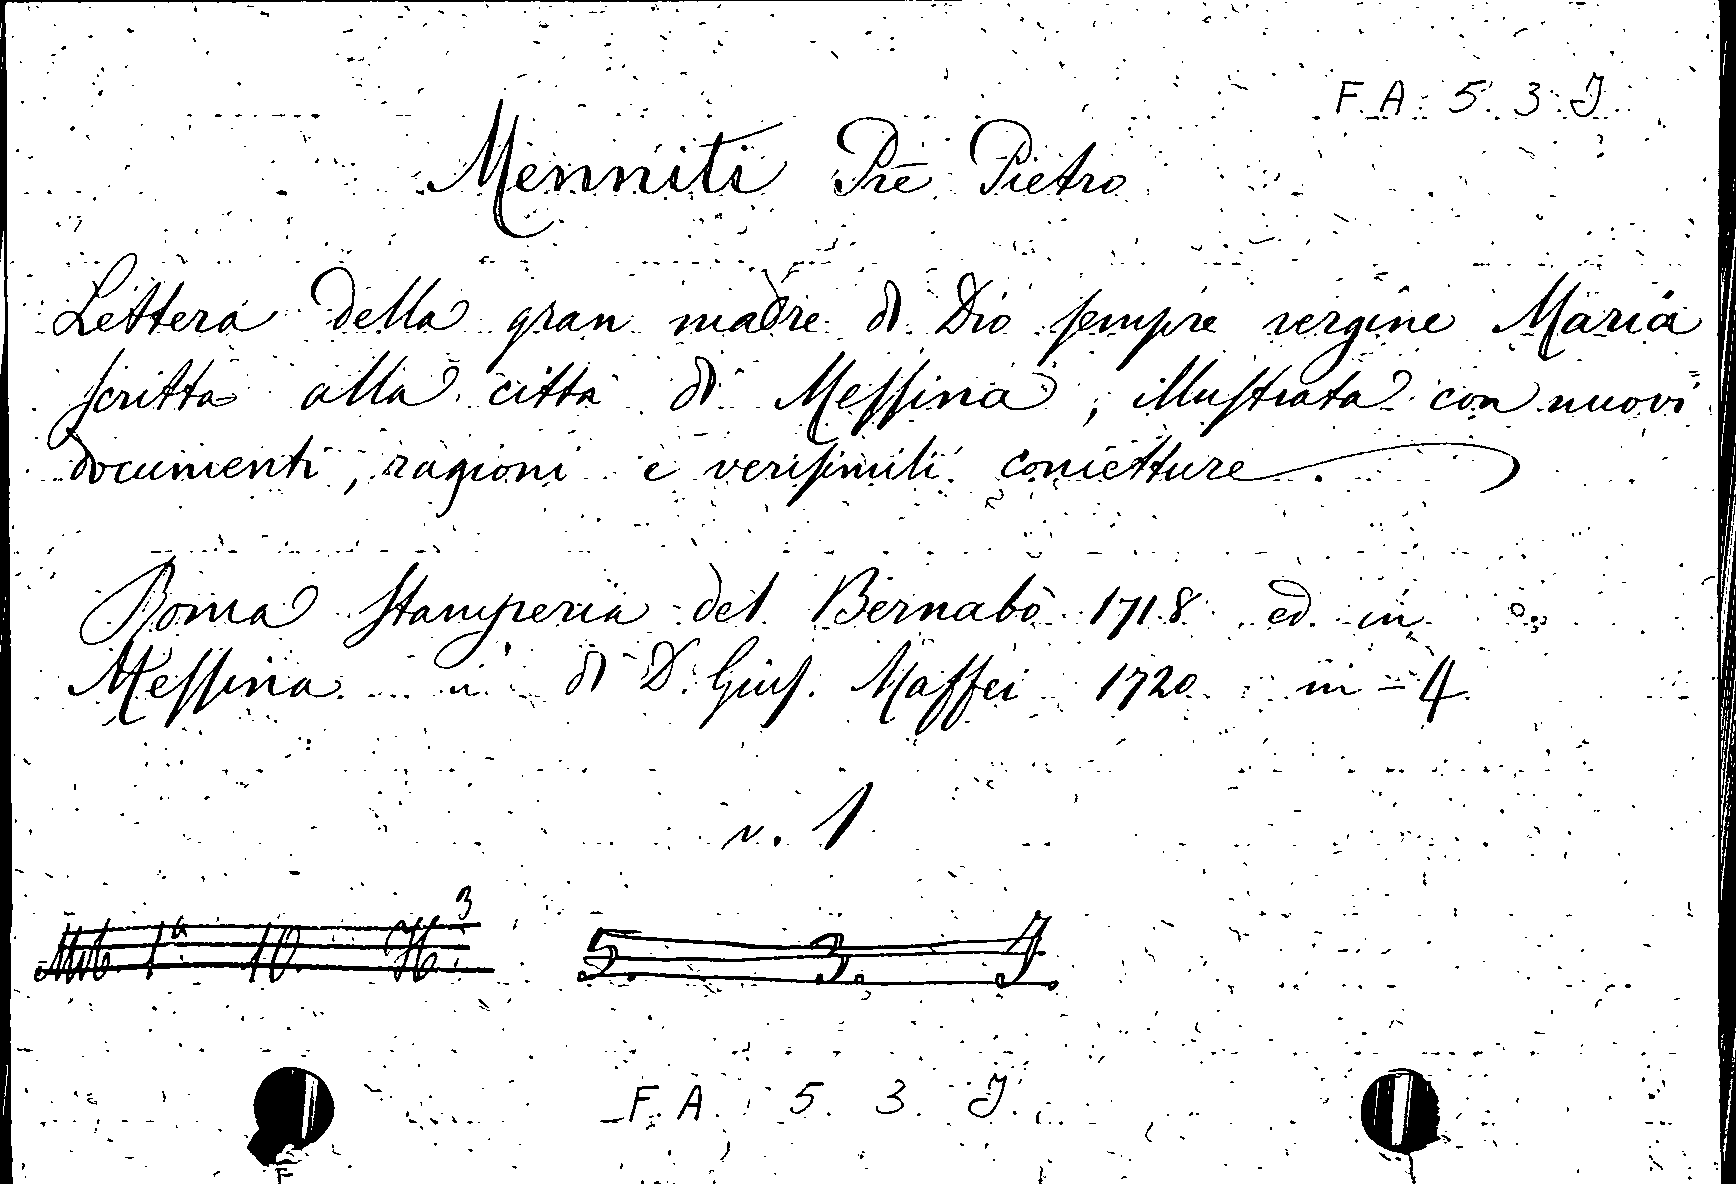 F. A. 5. 3. J.
Menniti Prē Pietro
Lettera della gran madre di Dio sempre vergine Maria
scritta alla città di Messina, illustrata con nuovi
documenti, ragioni e verisimili conietture.
Roma Stamperia del Bernabò 1718 ed in
Messina di D. Gius. Maffei 1720 in-4
v. 1
5. 3. J.
F. A. 5. 3. J.